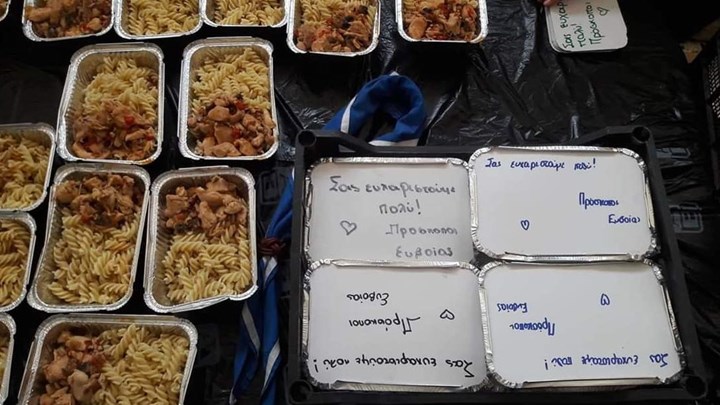 Σας ευχαριστούμε
πολύ!
♡ Πρόσκοποι
Ευβοίας
Σας ευχαριστούμε πολύ!
Πρόσκοποι
Ευβοίας
♡
Σας ευχαριστούμε πολύ!
♡ Πρόσκοποι
Ευβοίας
Σας ευχαριστούμε πολύ!
Πρόσκοποι
Ευβοίας
♡
Σας ευχαριστούμε
πολύ!
Πρόσκοποι
♡